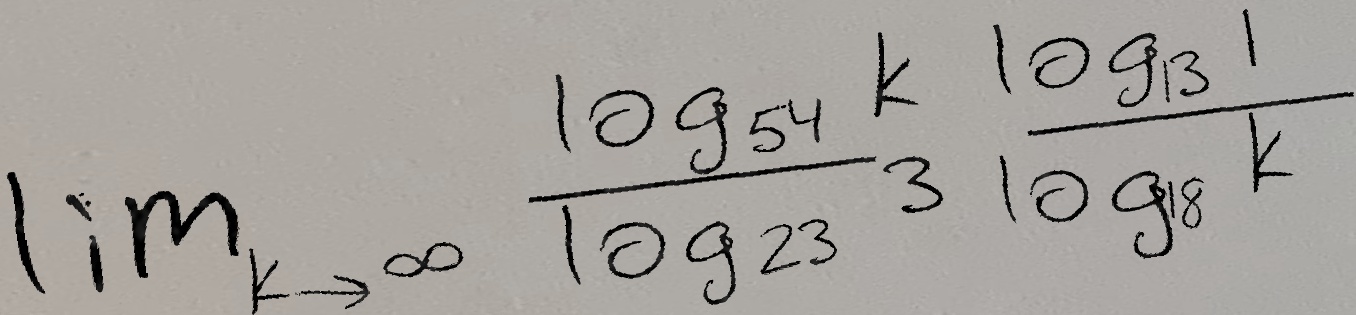 \lim_{k \to \infty} \frac{\log_{54} k}{\log_{23} 3} \frac{\log_{13} 1}{\log_{18} k}